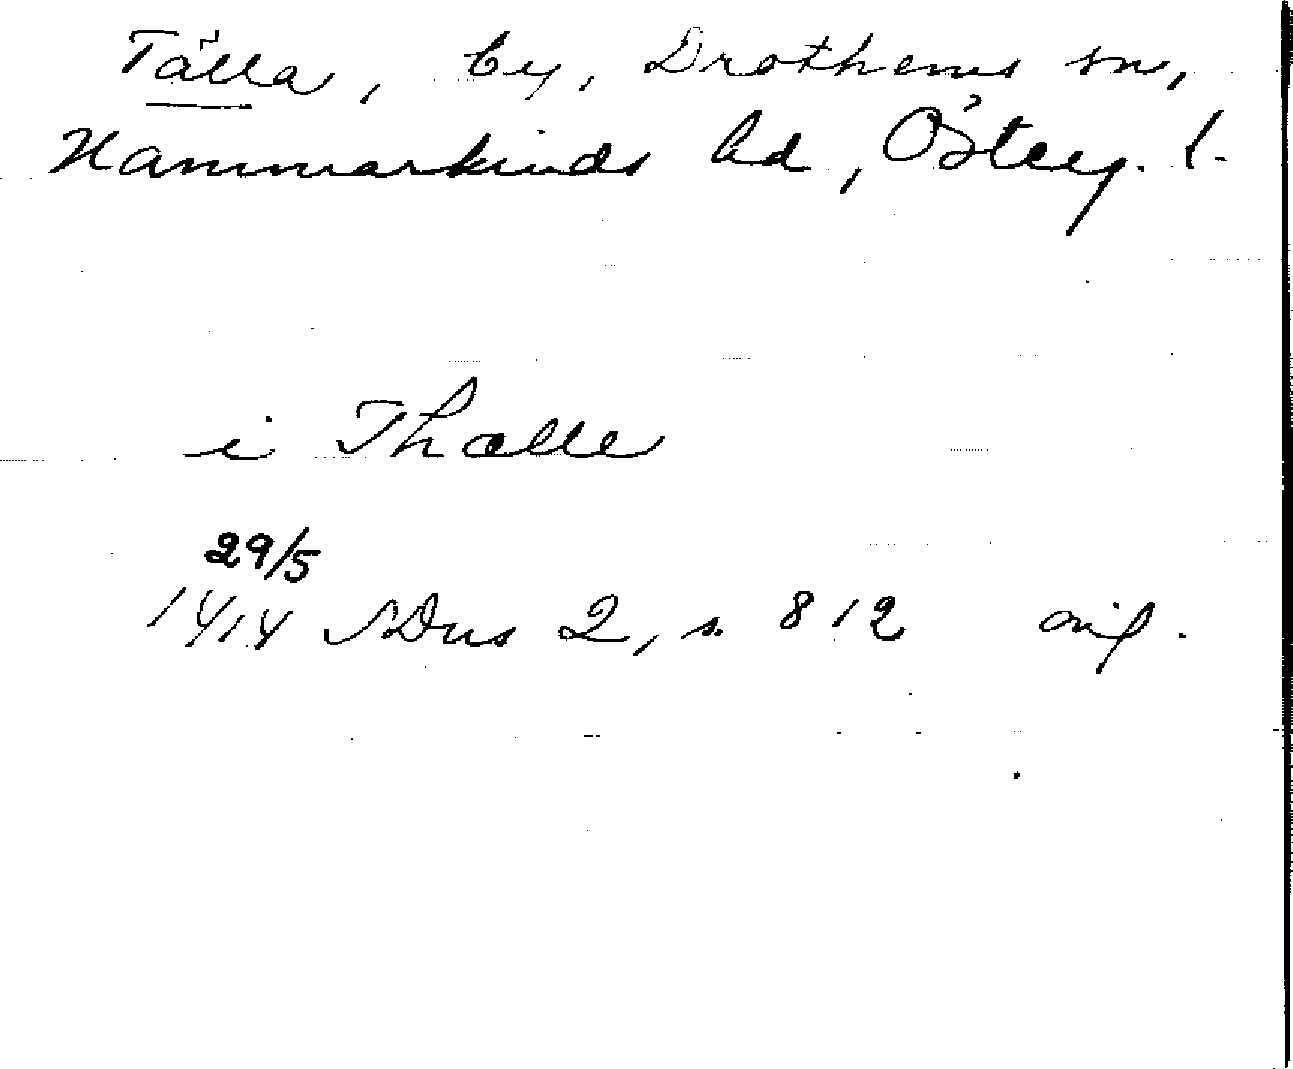 Tälla, by, Drothems sn,
Hammarkinds hd, Österg. l.
i Thælle
29/5
1414 SDns 2, s. 812 orig.